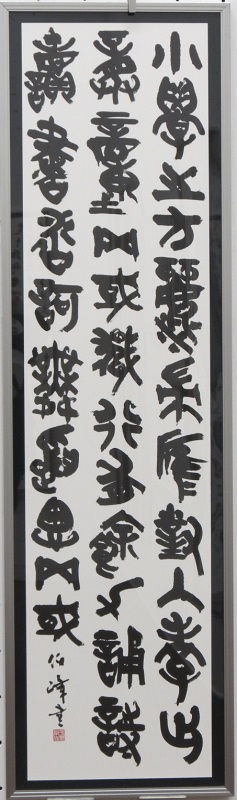 小學之方灑掃應對入孝出
恭動罔或悖行有餘力誦詩
讀書咏歌舞蹈思罔或
伯峰書